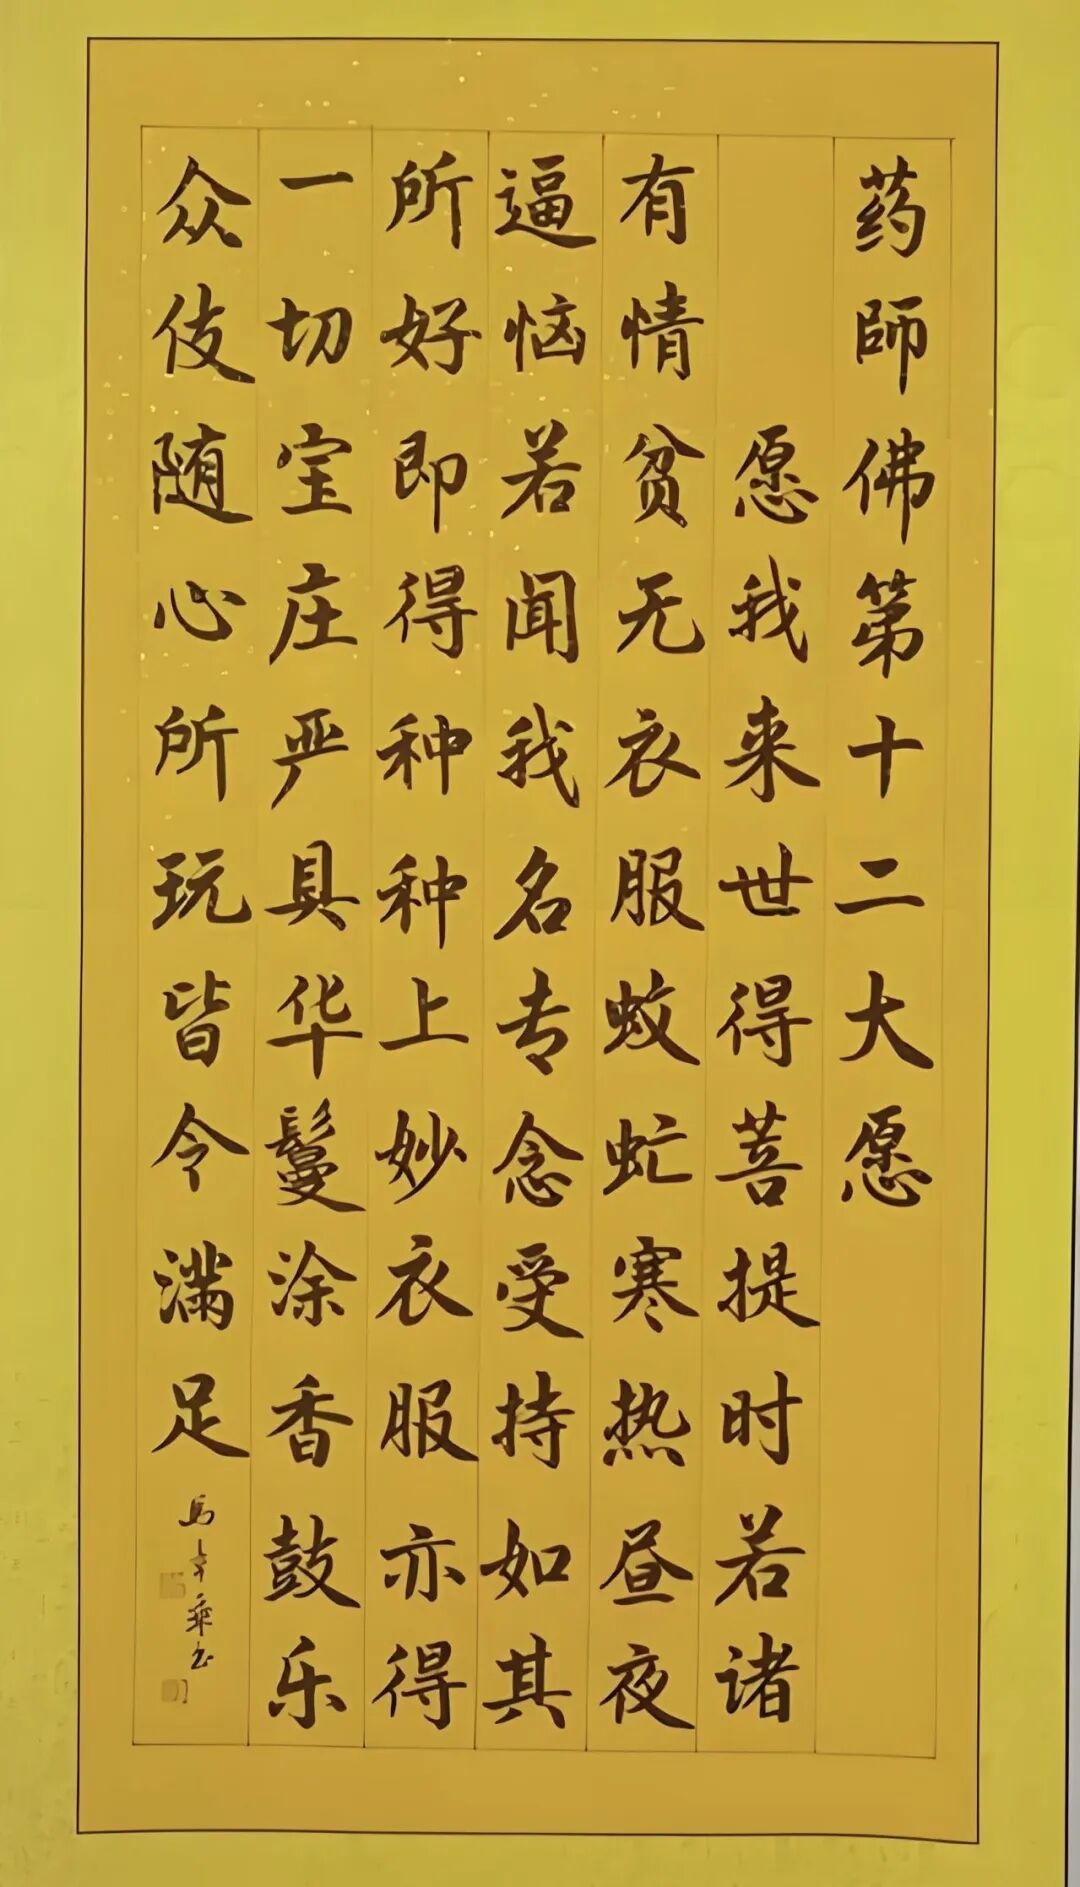 药師佛第十二大愿
愿我来世得菩提时若诸
有情贫无衣服蚊虻寒热昼夜
逼恼若闻我名专念受持如其
所好即得种种上妙衣服亦得
一切宝庄严具华鬘涂香鼓乐
众伎随心所玩皆令满足